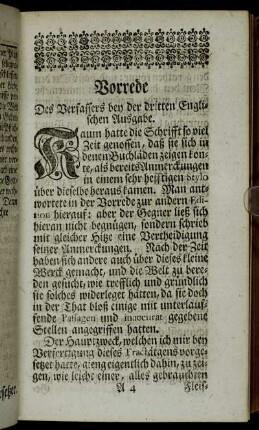 Vorrede
Des Verfassers bey der dritten Engli-
schen Ausgabe.
Kaum hatte die Schrifft so viel
Zeit genossen, daß sie sich in
denen Buchläden zeigen kon-
te, als bereits Anmerckungen
in einem sehr hefftigen Stylo
über dieselbe heraus kamen. Man ant-
wortete in der Vorrede zur andern Edi-
tion hierauf: aber der Gegner ließ sich
hieran nicht begnügen, sondern schrieb
mit gleicher Hitze eine Vertheidigung
seiner Anmerckungen. Nach der Zeit
haben sich andere auch über dieses kleine
Werck gemacht, und die Welt zu bere-
den gesucht, wie trefflich und gründlich
sie solches widerleget hätten, da sie doch
in der That bloß einige mit unterlauf-
fende Passagen und inaccurat gegebene
Stellen angegriffen hatten.
Der Hauptzweck, welchen ich mir bey
Verfertigung dieses Tractätgens vorge-
setzet hatte, gieng eigentlich dahin, zu zei-
gen, wie leicht einer, alles gebrauchten
A 4
Fleis-